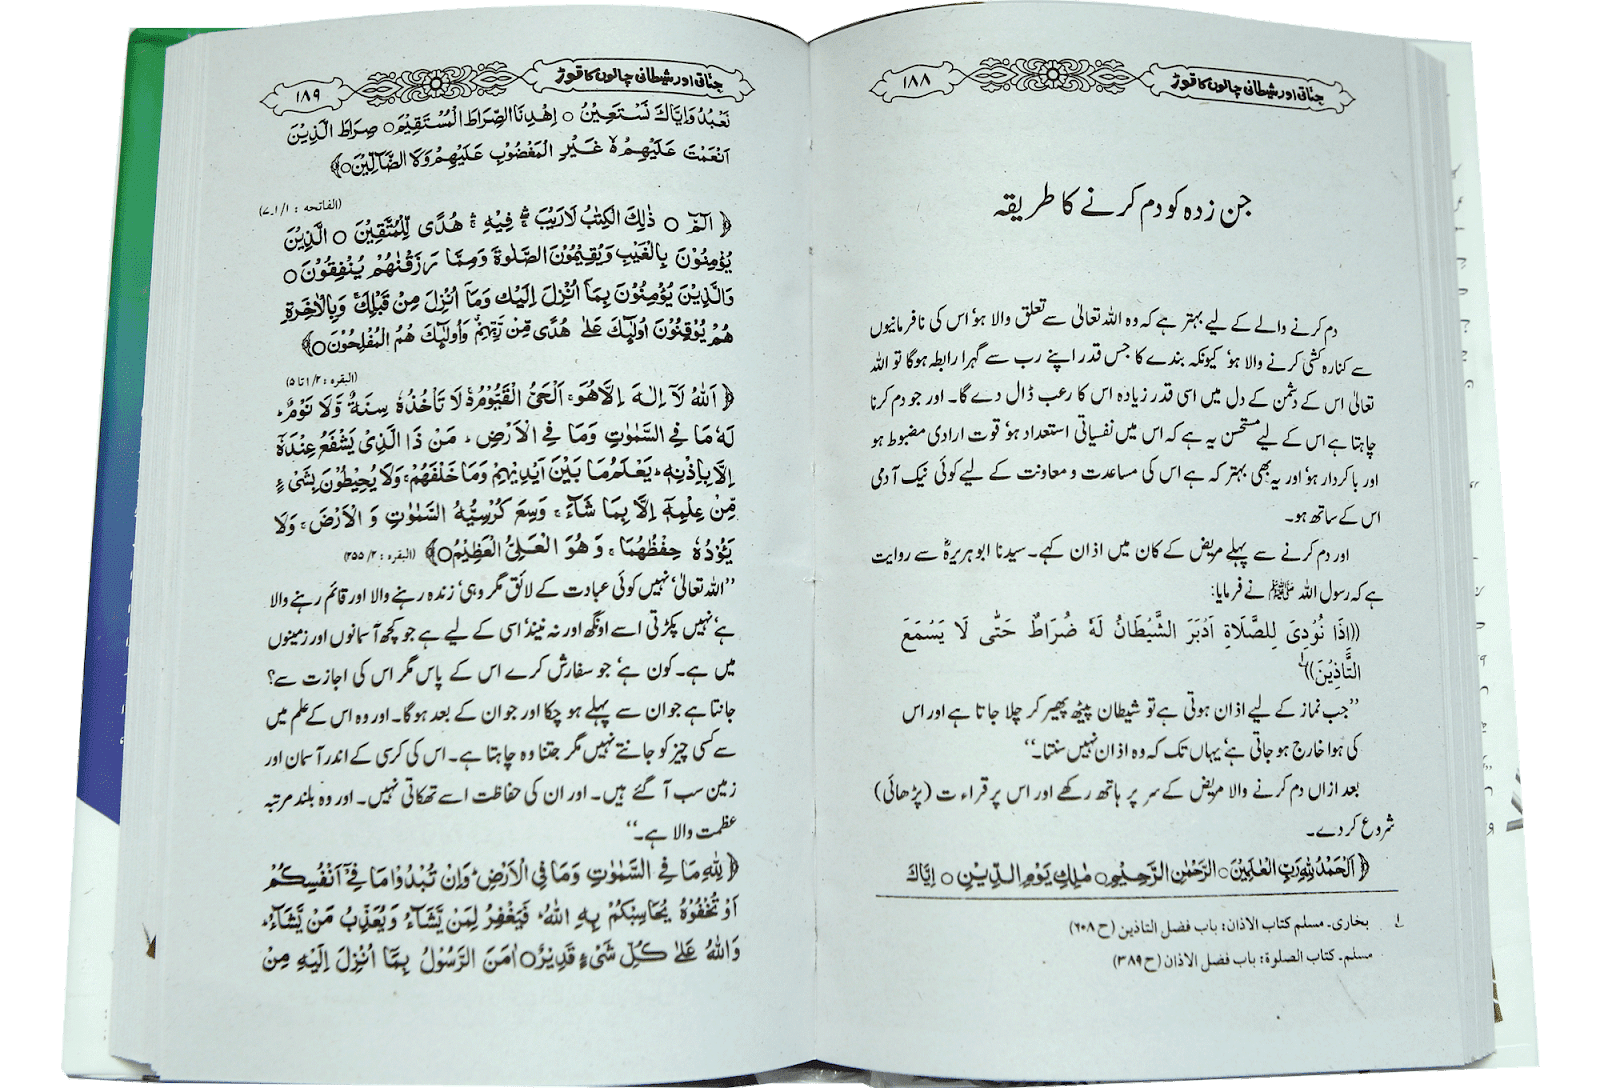 ۱۸۸ جناتی اور شیطانی چالوں کا توڑ
جن زدہ کو دم کرنے کا طریقہ
دم کرنے والے کے لیے بہتر ہے کہ وہ اللہ تعالیٰ سے تعلق والا ہو‘ اس کی نافرمانیوں
سے کنارہ کشی کرنے والا ہو‘ کیونکہ بندے کا جس قدر اپنے رب سے گہرا رابطہ ہوگا تو اللہ
تعالیٰ اس کے دشمن کے دل میں اسی قدر زیادہ اس کا رعب ڈال دے گا۔ اور جو دم کرنا
چاہتا ہے اس کے لیے مستحسن یہ ہے کہ اس میں نفسیاتی استعداد ہو‘ قوت ارادی مضبوط ہو
اور باکردار ہو‘ اور یہ بھی بہتر کہ ہے اس کی مساعدت و معاونت کے لیے کوئی نیک آدمی
اس کے ساتھ ہو۔
اور دم کرنے سے پہلے مریض کے کان میں اذان کہے۔ سیدنا ابو ہریرہؓ سے روایت
ہے کہ رسول اللہ ﷺ نے فرمایا:
((إِذَا نُوْدِیَ لِلصَّلَاةِ اَدْبَرَ الشَّیْطَانُ لَهٗ ضُرَاطٌ حَتّٰی لَا یَسْمَعَ
التَّاذِیْنَ))۱
’’جب نماز کے لیے اذان ہوتی ہے تو شیطان پیٹھ پھیر کر چلا جاتا ہے اور اس
کی ہوا خارج ہو جاتی ہے‘ یہاں تک کہ وہ اذان نہیں سنتا۔‘‘
بعد ازاں دم کرنے والا مریض کے سر پر ہاتھ رکھے اور اس پر قراءت (پڑھائی)
شروع کر دے۔
﴿ اَلْحَمْدُ لِلّٰهِ رَبِّ الْعٰلَمِیْنَ○ الرَّحْمٰنِ الرَّحِیْمِ○ مٰلِكِ یَوْمِ الدِّیْنِ○ اِیَّاكَ
۱ بخاری۔ مسلم کتاب الاذان: باب فضل التاذین (ح ۶۰۸)
مسلم۔ کتاب الصلوة: باب فضل الاذان (ح ۳۸۹)
۱۸۹ جناتی اور شیطانی چالوں کا توڑ
نَعْبُدُ وَاِیَّاكَ نَسْتَعِیْنُ ○ اِهْدِنَا الصِّرَاطَ الْمُسْتَقِیْمَ○ صِرَاطَ الَّذِیْنَ
اَنْعَمْتَ عَلَیْهِمْ ۙ غَیْرِ الْمَغْضُوْبِ عَلَیْهِمْ وَلَا الضَّآلِّیْنَ○﴾
(الفاتحه : ۱/۱۔۷)
﴿ الٓمّٓ ○ ذٰلِكَ الْكِتٰبُ لَا رَیْبَ ۛ فِیْهِ ۛ هُدًی لِّلْمُتَّقِیْنَ ○ الَّذِیْنَ
یُؤْمِنُوْنَ بِالْغَیْبِ وَیُقِیْمُوْنَ الصَّلٰوةَ وَمِمَّا رَزَقْنٰهُمْ یُنْفِقُوْنَ○
وَالَّذِیْنَ یُؤْمِنُوْنَ بِمَآ اُنْزِلَ اِلَیْكَ وَمَآ اُنْزِلَ مِنْ قَبْلِكَ ۚ وَبِالْاٰخِرَةِ
هُمْ یُوْقِنُوْنَ اُولٰٓئِكَ عَلٰی هُدًی مِّنْ رَّبِّهِمْ ۗ وَاُولٰٓئِكَ هُمُ الْمُفْلِحُوْنَ○﴾
(البقره : ۱/۲ تا ۵)
﴿ اَللّٰهُ لَآ اِلٰهَ اِلَّا هُوَ ۚ اَلْحَیُّ الْقَیُّوْمُ ۚ لَا تَاْخُذُهٗ سِنَةٌ وَّلَا نَوْمٌ ؕ
لَهٗ مَا فِی السَّمٰوٰتِ وَمَا فِی الْاَرْضِ ؕ مَنْ ذَا الَّذِیْ یَشْفَعُ عِنْدَهٗٓ
اِلَّا بِاِذْنِهٖ ؕ یَعْلَمُ مَا بَیْنَ اَیْدِیْهِمْ وَمَا خَلْفَهُمْ ۚ وَلَا یُحِیْطُوْنَ بِشَیْءٍ
مِّنْ عِلْمِهٖٓ اِلَّا بِمَا شَآءَ ۚ وَسِعَ كُرْسِیُّهُ السَّمٰوٰتِ وَ الْاَرْضَ ۚ وَلَا
یَؤُدُهٗ حِفْظُهُمَا ۚ وَ هُوَ الْعَلِیُّ الْعَظِیْمُ○﴾ (البقره : ۲/ ۲۵۵)
’’اللہ تعالیٰ‘ نہیں کوئی عبادت کے لائق مگر وہی‘ زندہ رہنے والا اور قائم رہنے والا
ہے‘ نہیں پکڑتی اسے اونگھ اور نہ نیند‘ اسی کے لیے ہے جو کچھ آسمانوں اور زمینوں
میں ہے۔ کون ہے‘ جو سفارش کرے اس کے پاس مگر اس کی اجازت سے؟
جانتا ہے جو ان سے پہلے ہو چکا اور جو ان کے بعد ہوگا۔ اور وہ اس کے علم میں
سے کسی چیز کو جانتے نہیں مگر جتنا وہ چاہتا ہے۔ اس کی کرسی کے اندر آسمان اور
زمین سب آ گئے ہیں۔ اور ان کی حفاظت اسے تھکاتی نہیں۔ اور وہ بلند مرتبہ
عظمت والا ہے۔‘‘
﴿ لِلّٰهِ مَا فِی السَّمٰوٰتِ وَمَا فِی الْاَرْضِ ؕ وَاِنْ تُبْدُوْا مَا فِیْٓ اَنْفُسِكُمْ
اَوْ تُخْفُوْهُ یُحَاسِبْكُمْ بِهِ اللّٰهُ ؕ فَیَغْفِرُ لِمَنْ یَّشَآءُ وَیُعَذِّبُ مَنْ یَّشَآءُ ؕ
وَاللّٰهُ عَلٰی كُلِّ شَیْءٍ قَدِیْرٌ○ اٰمَنَ الرَّسُوْلُ بِمَآ اُنْزِلَ اِلَیْهِ مِنْ